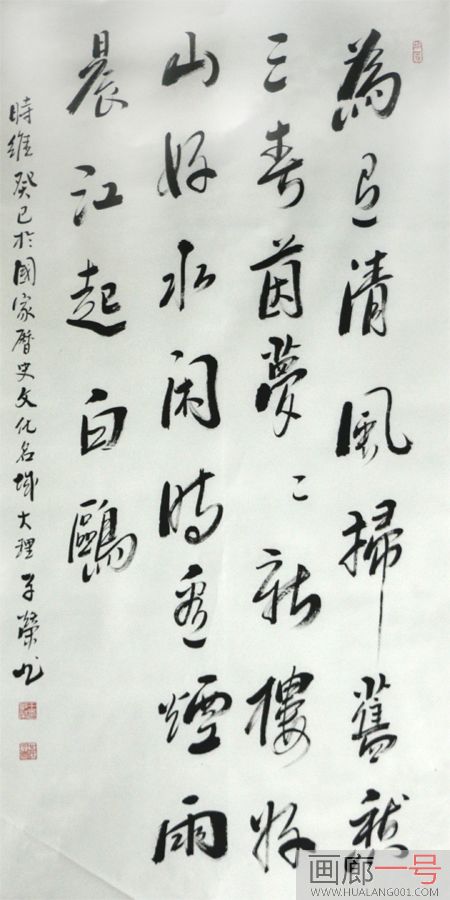 為清風掃舊
三春茵夢〻新樓好
山好水閑時煙雨
晨江起白鷗
時維癸巳於國家曆史文化名城大理子榮书
画廊一号
WWW.HUALANG001.COM